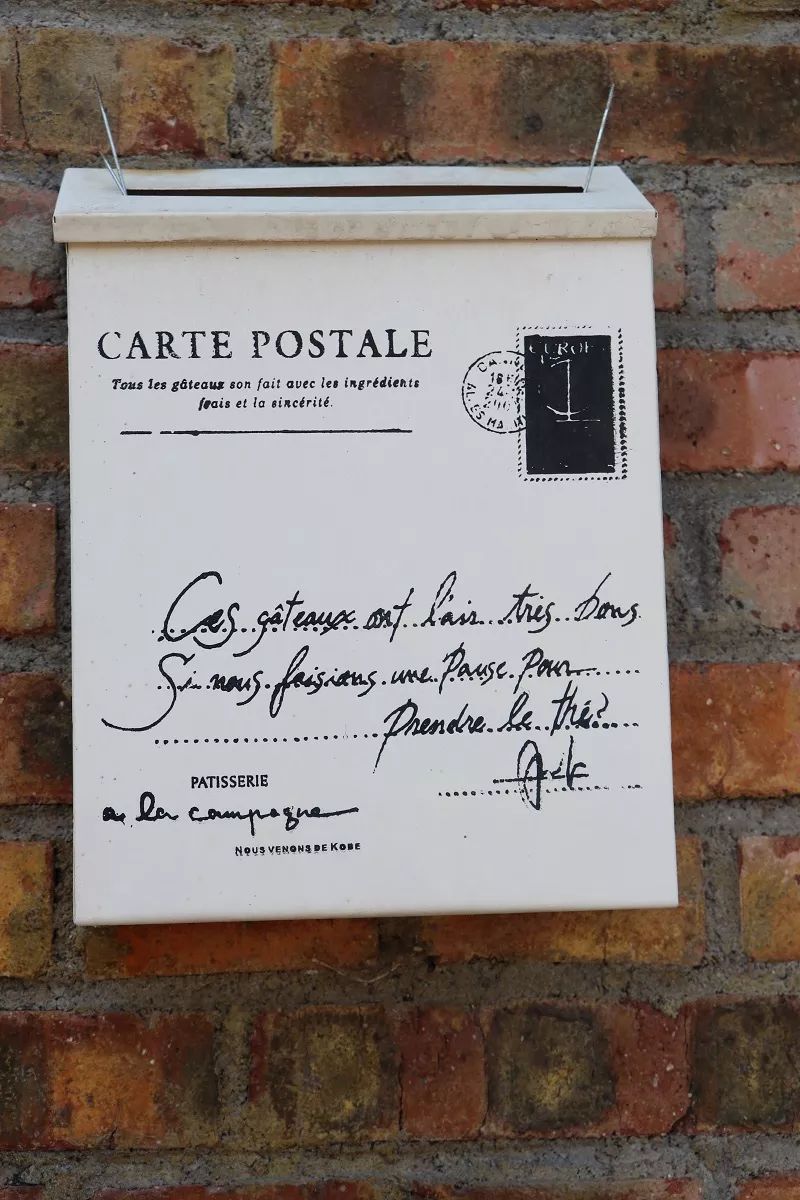 CARTE POSTALE
Tous les gâteaux son fait avec les ingrédients
frais et la sincérité.
EUROP
1
Ces gâteaux ont l'air très bons
Si nous faisions une Pause Pour
Prendre le thé?
PATISSERIE
a la campagne
NOUS VENONS DE KOBE